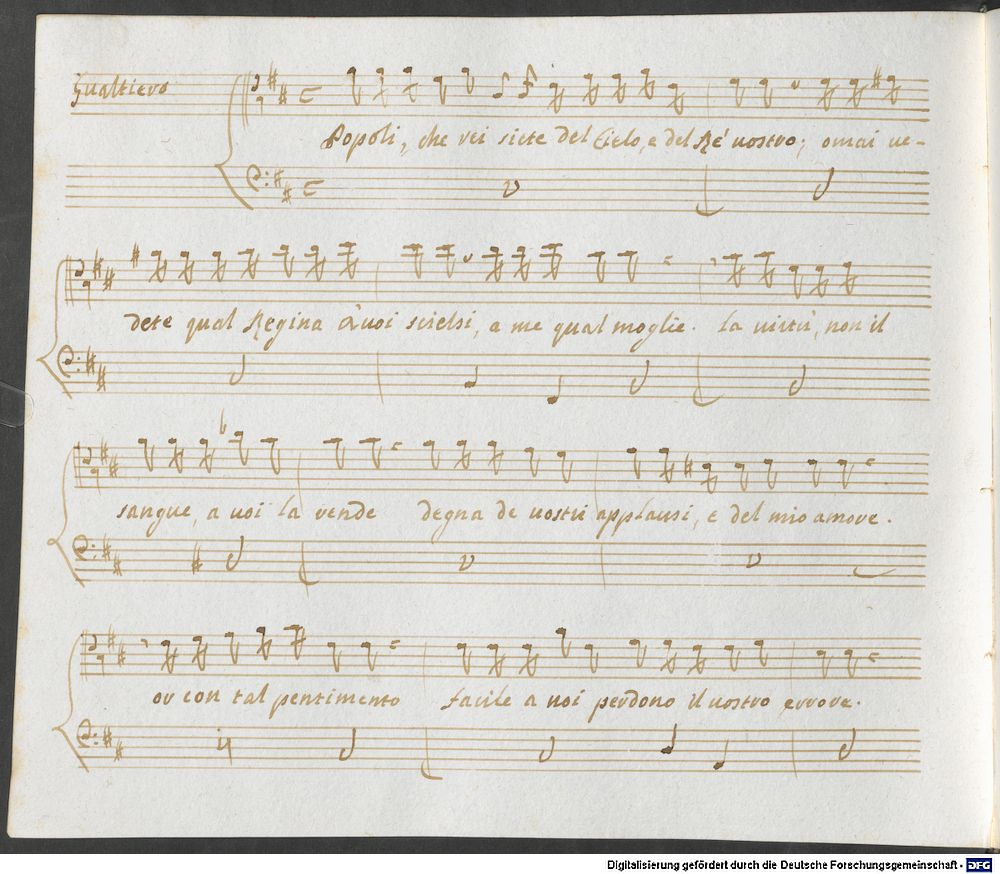 Gualtiero
Popoli, che rei siete del Cielo, e del Ré vostro; omai ve-
dete qual Regina à voi scielsi, a me qual moglie. la virtù, non il
sangue, a voi la rende degna de vostri applausi, e del mio amore.
or con tal pentimento facile a voi perdono il vostro errore.
Digitalisierung gefördert durch die Deutsche Forschungsgemeinschaft - DFG